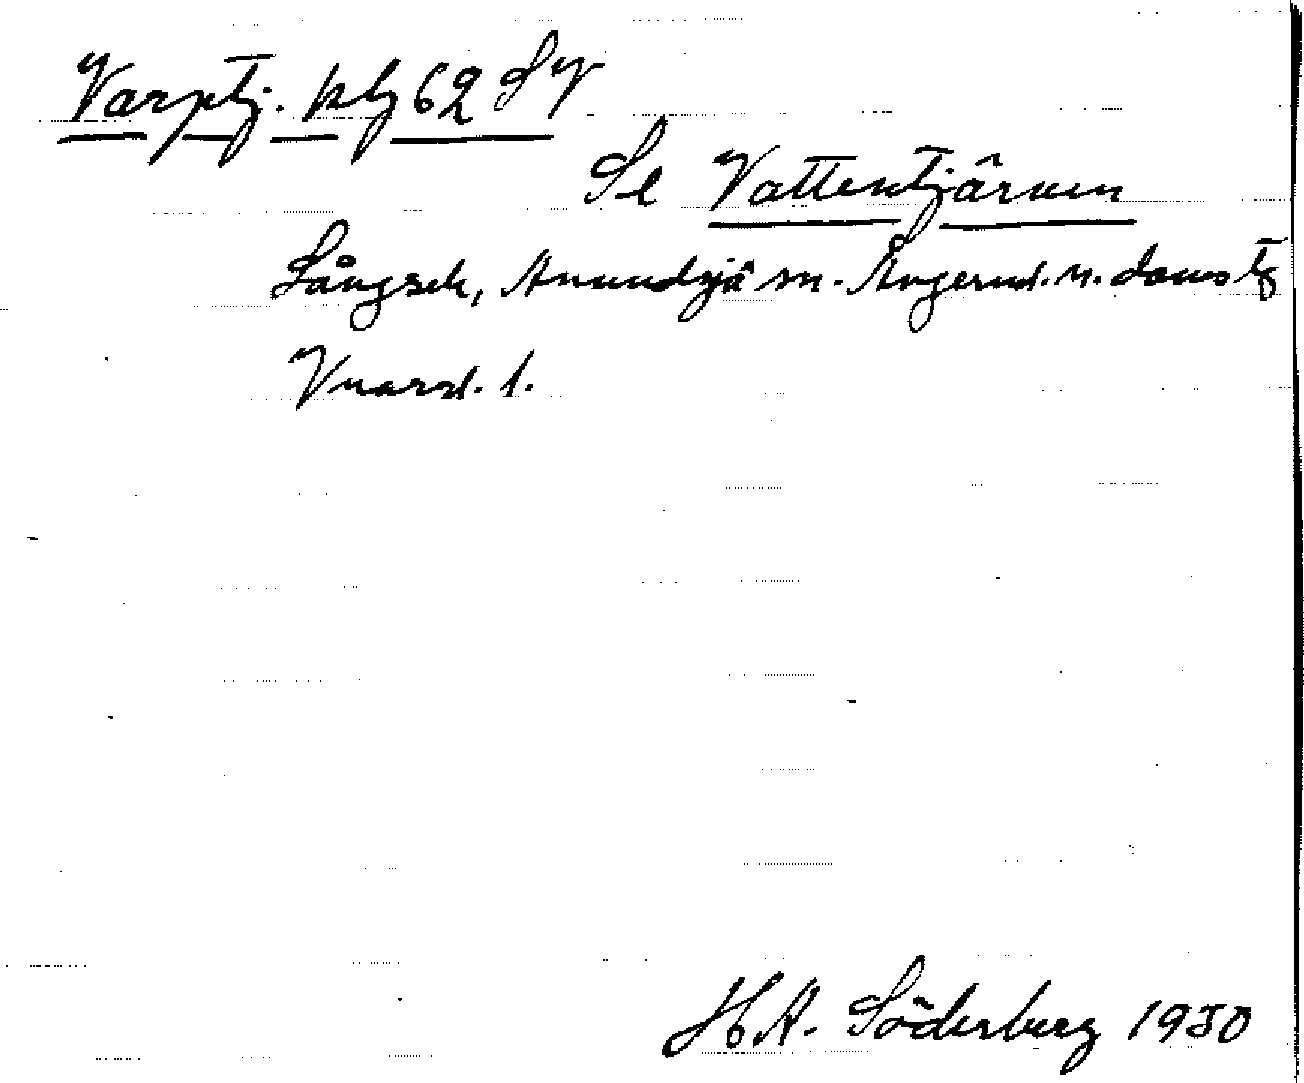 Varptj. kbl 62 SV
Se Vattentjärnen
Långsele, Anundsjö sn. Ångerml. n. doms tg
Vnorrl. l.
H A. Söderberg 1930